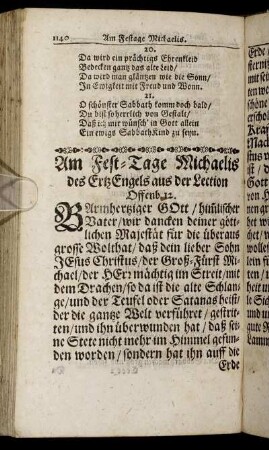 1140 Am Festage Michaelis.
20.
Da wird ein prächtigs Ehrenkleid
Bedecken gantz das alte leid/
Da werd man gläntzen wie die Sonn/
In Ewigkeit mit Freud und Wonn.
21.
O schönster Sabbath komm doch bald/
Du bist so herrlich von Gestalt/
Daß ich mir wünsch' in Gott allein
Ein ewigs Sabbath Kind zu seyn.
Am Fest-Tage Michaelis
des ErtzEngels aus der Lection
Offenb. 12.
BArmhertziger GOtt/ himlischer
Vater/ wir dancken deiner göt-
lichen Majestät für die überaus
grosse Wolthat/ daß dein lieber Sohn
JEsus Christus/ der Groß-Fürst Mi-
chael/ der HErr mächtig im Streit/ mit
dem Drachen/ so da ist die alte Schlan-
ge/ und der Teufel oder Satanas heist/
der die gantze Welt verführet/ gestrit-
ten/ und ihn überwunden hat/ daß sei-
ne Stete nicht mehr im Himmel gefun-
den worden/ sondern hat ihn auff die
Erde